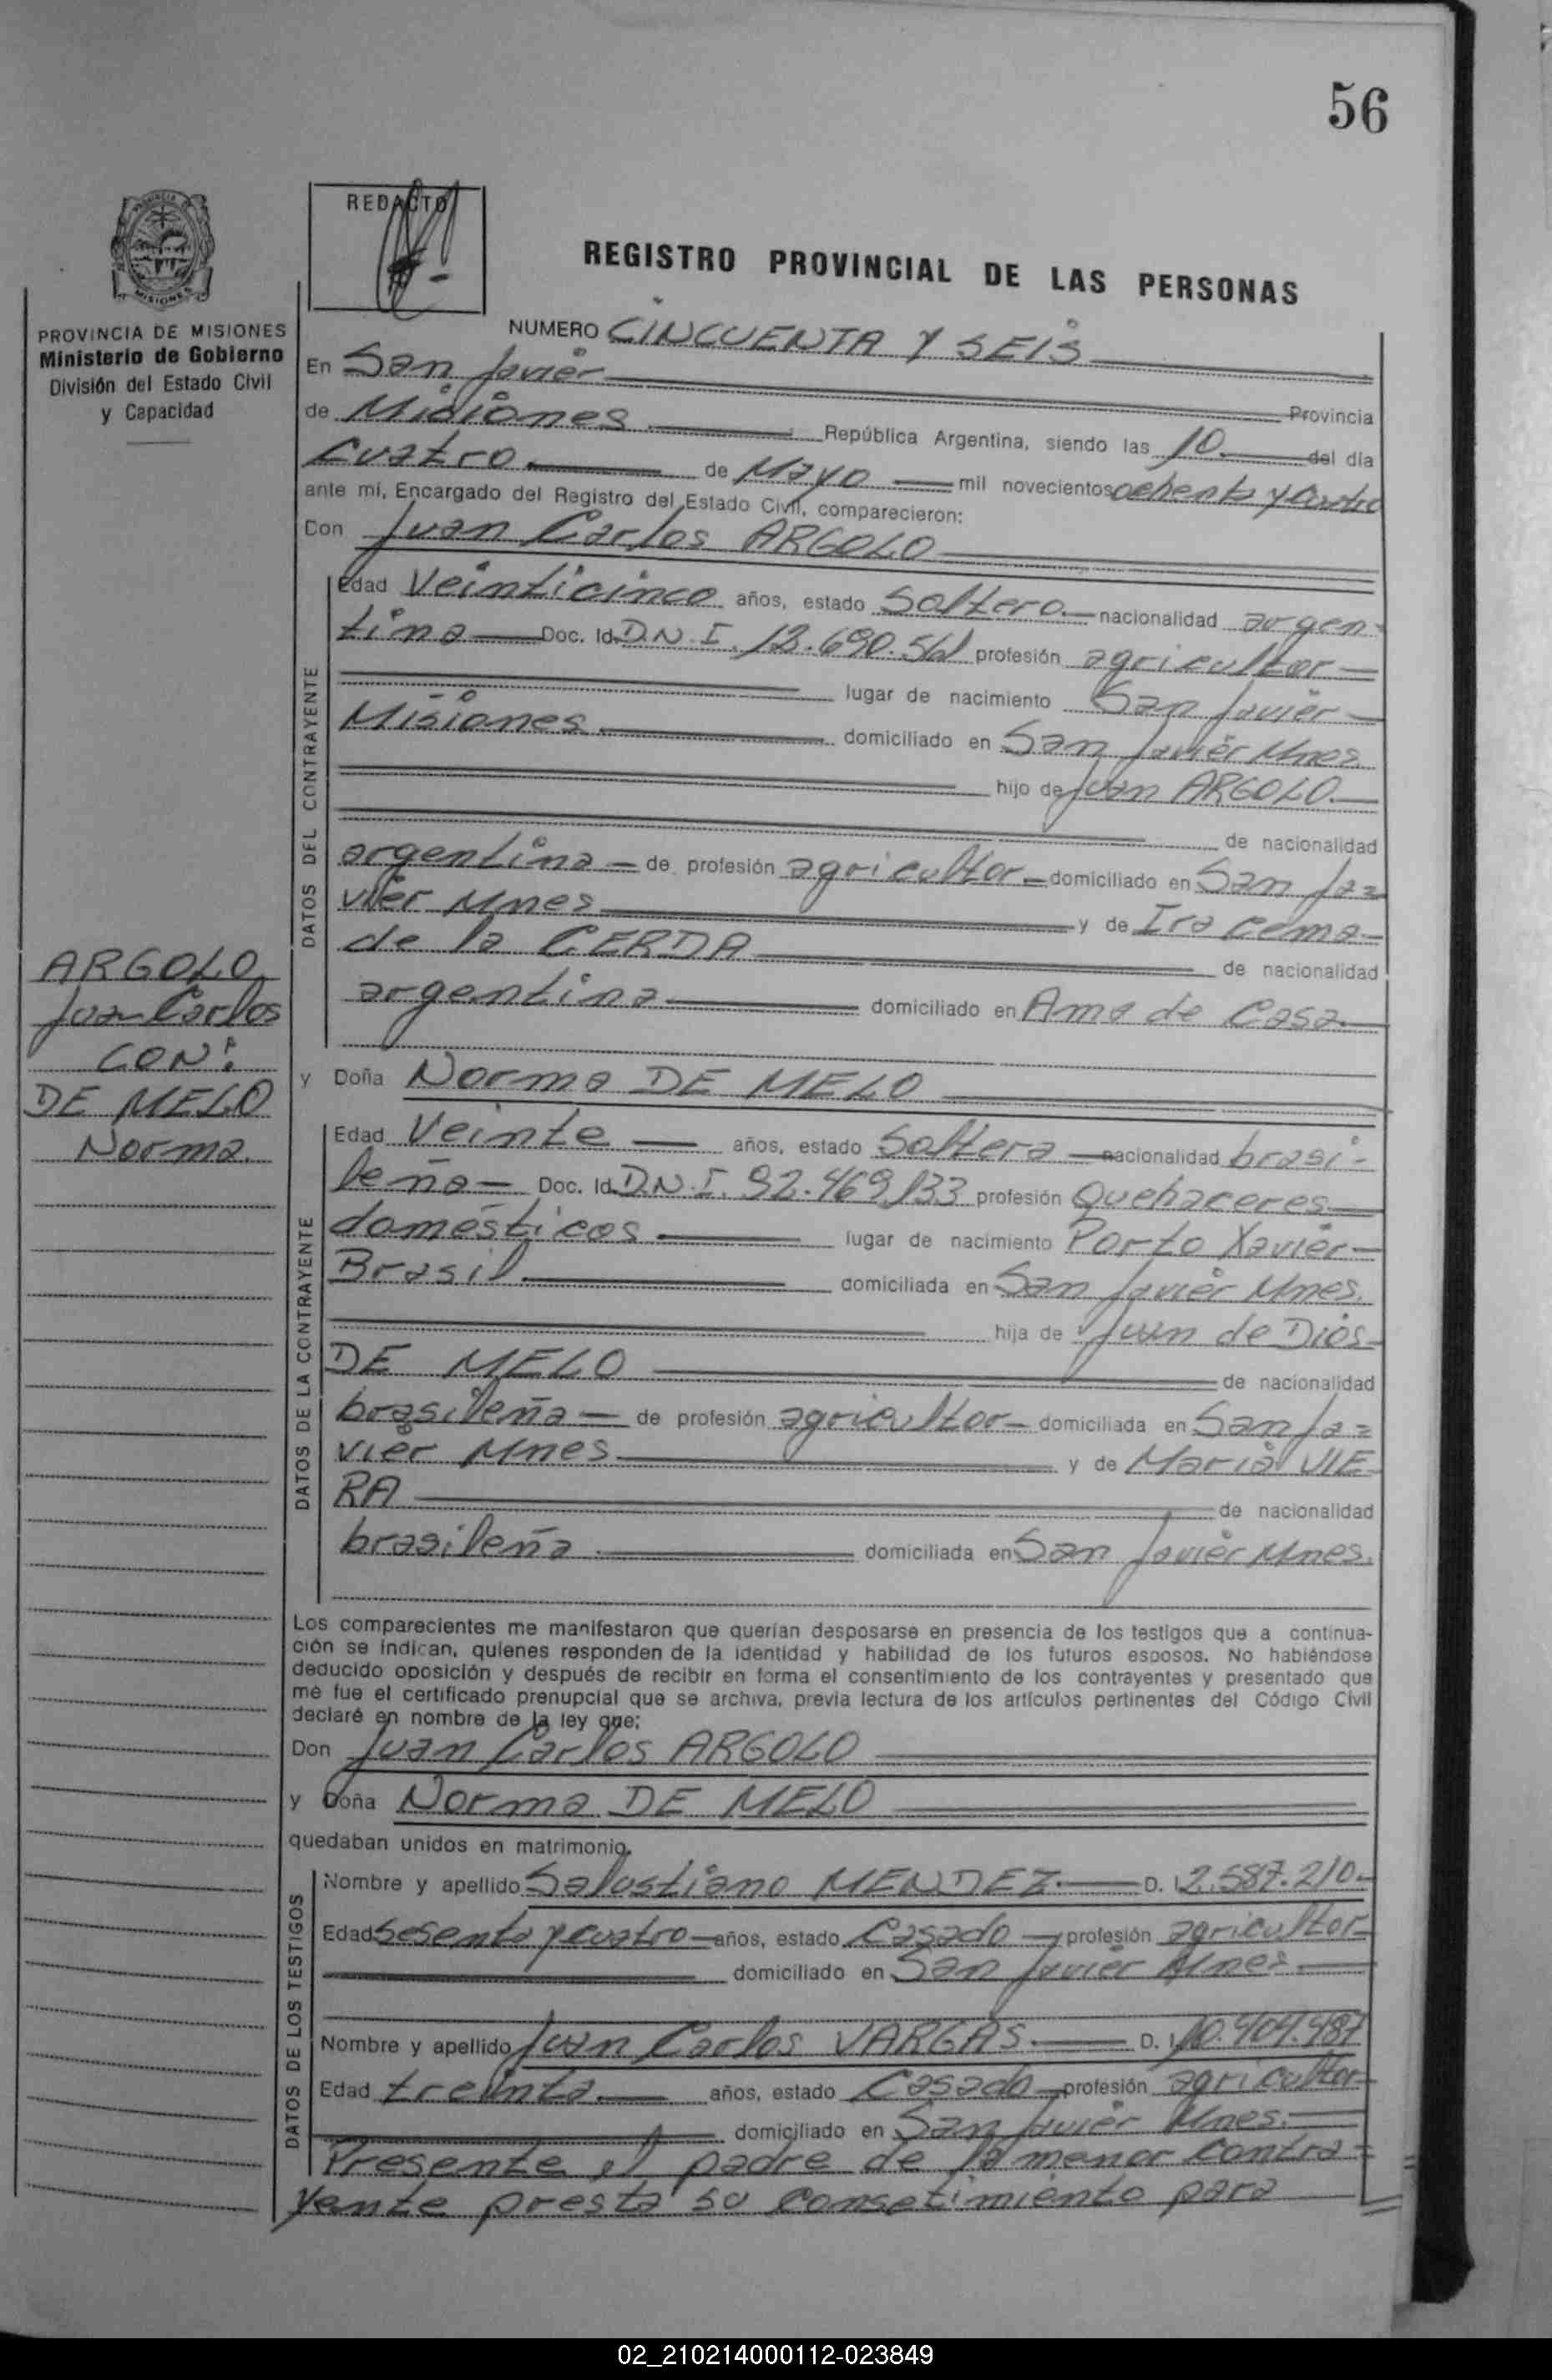 56
REDACTO
REGISTRO PROVINCIAL DE LAS PERSONAS
PROVINCIA DE MISIONES
Ministerio de Gobierno
División del Estado Civil
y Capacidad
NUMERO CINCUENTA Y SEIS
En San Javier
Provincia
de Misiones República Argentina, siendo las 10 del día
cuatro de Mayo mil novecientos ochenta y cuatro
ante mí, Encargado del Registro del Estado Civil, comparecieron:
Con Juan Carlos ARGOLO
DATOS DEL CONTRAYENTE
Edad Veinticinco años, estado Soltero nacionalidad argen-
tina Doc. Id. D.N.I. profesión agricultor
lugar de nacimiento San Javier
Misiones domiciliado en San Javier Mnes.
hijo de Juan ARGOLO.
de nacionalidad
argentina de profesión agricultor domiciliado en San Ja=
vier Mnes y de Iracema
de la CERDA de nacionalidad
argentina domiciliado en Ama de Casa
ARGOLO
Juan Carlos
CON:
DE MELO
Norma
y Doña Norma DE MELO
DATOS DE LA CONTRAYENTE
Edad Veinte años, estado Soltera nacionalidad brasi-
leña Doc. Id. D.N.I. 92.469.133 profesión Quehaceres
domésticos lugar de nacimiento Porto Xavier
Brasil domiciliada en San Javier Mnes.
hija de Juan de Dios
DE MELO de nacionalidad
brasileña de profesión agricultor domiciliada en San Ja=
vier Mnes y de Maria VIE
RA de nacionalidad
brasileña domiciliada en San Javier Mnes.
Los comparecientes me manifestaron que querían desposarse en presencia de los testigos que a continua-
ción se indican, quienes responden de la identidad y habilidad de los futuros esposos. No habiéndose
deducido oposición y después de recibir en forma el consentimiento de los contrayentes y presentado que
me fue el certificado prenupcial que se archiva, previa lectura de los artículos pertinentes del Código Civil
declaré en nombre de la ley que;
Don Juan Carlos ARGOLO
y Doña Norma DE MELO
quedaban unidos en matrimonio.
DATOS DE LOS TESTIGOS
Nombre y apellido Salustiano MENDEZ D. I. 2.587.210
Edad Sesenta y cuatro años, estado Casado profesión agricultor
domiciliado en San Javier Mnes
Nombre y apellido Juan Carlos VARGAS D. I.
Edad treinta años, estado Casado profesión agricultor
domiciliado en San Javier Mnes.
Presente el padre de la menor contra=
yente presta su consetimiento para
02_210214000112-023849